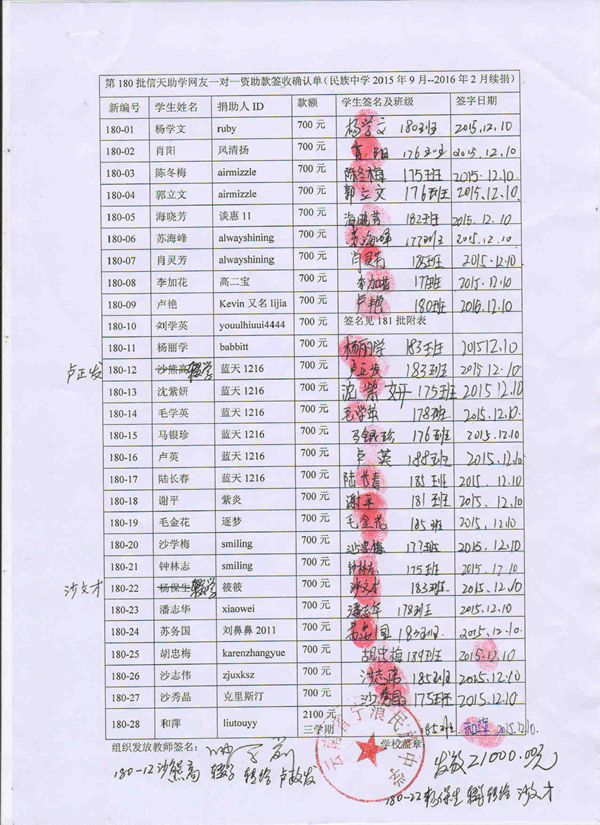 第180批信天助学网友一对一资助款签收确认单（民族中学2015年9月--2016年2月续捐）
新编号 学生姓名 捐助人ID 款额 学生签名及班级 签字日期
180-01 杨学文 ruby 700元 杨学文 180班 2015.12.10
180-02 肖阳 风清扬 700元 肖阳 176班 2015.12.10
180-03 陈冬梅 airmizzle 700元 陈冬梅 175班 2015.12.10
180-04 郭立文 airmizzle 700元 郭立文 176班 2015.12.10
180-05 海晓芳 谈惠11 700元 海晓芳 182班 2015.12.10
180-06 苏海峰 alwayshining 700元 苏海峰 177班 2015.12.10
180-07 肖灵芳 alwayshining 700元 肖灵芳 185班 2015.12.10
180-08 李加花 高二宝 700元 李加花 17班 2015.12.10
180-09 卢艳 Kevin 又名lijia 700元 卢艳 180班 2015.12.10
180-10 刘学英 youulhiuui4444 700元 签名见181批附表
180-11 杨丽学 babbitt 700元 杨丽学 183班 201512.10
卢正发 180-12 沙熊高 辍学 蓝天1216 700元 卢正发 183班 2015.12.10
180-13 沈紫妍 蓝天1216 700元 沈紫妍 175班 2015.12.10
180-14 毛学英 蓝天1216 700元 毛学英 178班 2015.12.10
180-15 马银珍 蓝天1216 700元 马银珍 176班 2015.12.10
180-16 卢英 蓝天1216 700元 卢英 188班 2015.12.10
180-17 陆长春 蓝天1216 700元 陆长春 185班 2015.12.10
180-18 谢平 紫炎 700元 谢平 181班 2015.12.10
180-19 毛金花 逐梦 700元 毛金花 185班 2015.12.10
180-20 沙学梅 smiling 700元 沙学梅 177班 2015.12.10
180-21 钟林志 smiling 700元 钟林志 175班 2015.12.10
沙文才 180-22 杨保生 辍学 筱筱 700元 沙文才 183班 2015.12.10
180-23 潘志华 xiaowei 700元 潘志华 178班 2015.12.10
180-24 苏务国 刘鼻鼻2011 700元 苏务国 183班 2015.12.10
180-25 胡忠梅 karenzhangyue 700元 胡忠梅 189班 2015.12.10
180-26 沙志伟 zjuxksz 700元 沙志伟 185班 2015.12.10
180-27 沙秀晶 克里斯汀 700元 沙秀晶 175班 2015.12.10
180-28 和萍 liutouyy 2100元 三学期 185班 和萍 2015.12.10.
组织发放教师签名： 学校盖章：
云南省宁蒗民族中学
发放21000.00元
180-12沙熊高 辍学 转给 卢正发
180-22杨保生 辍学转给 沙文才